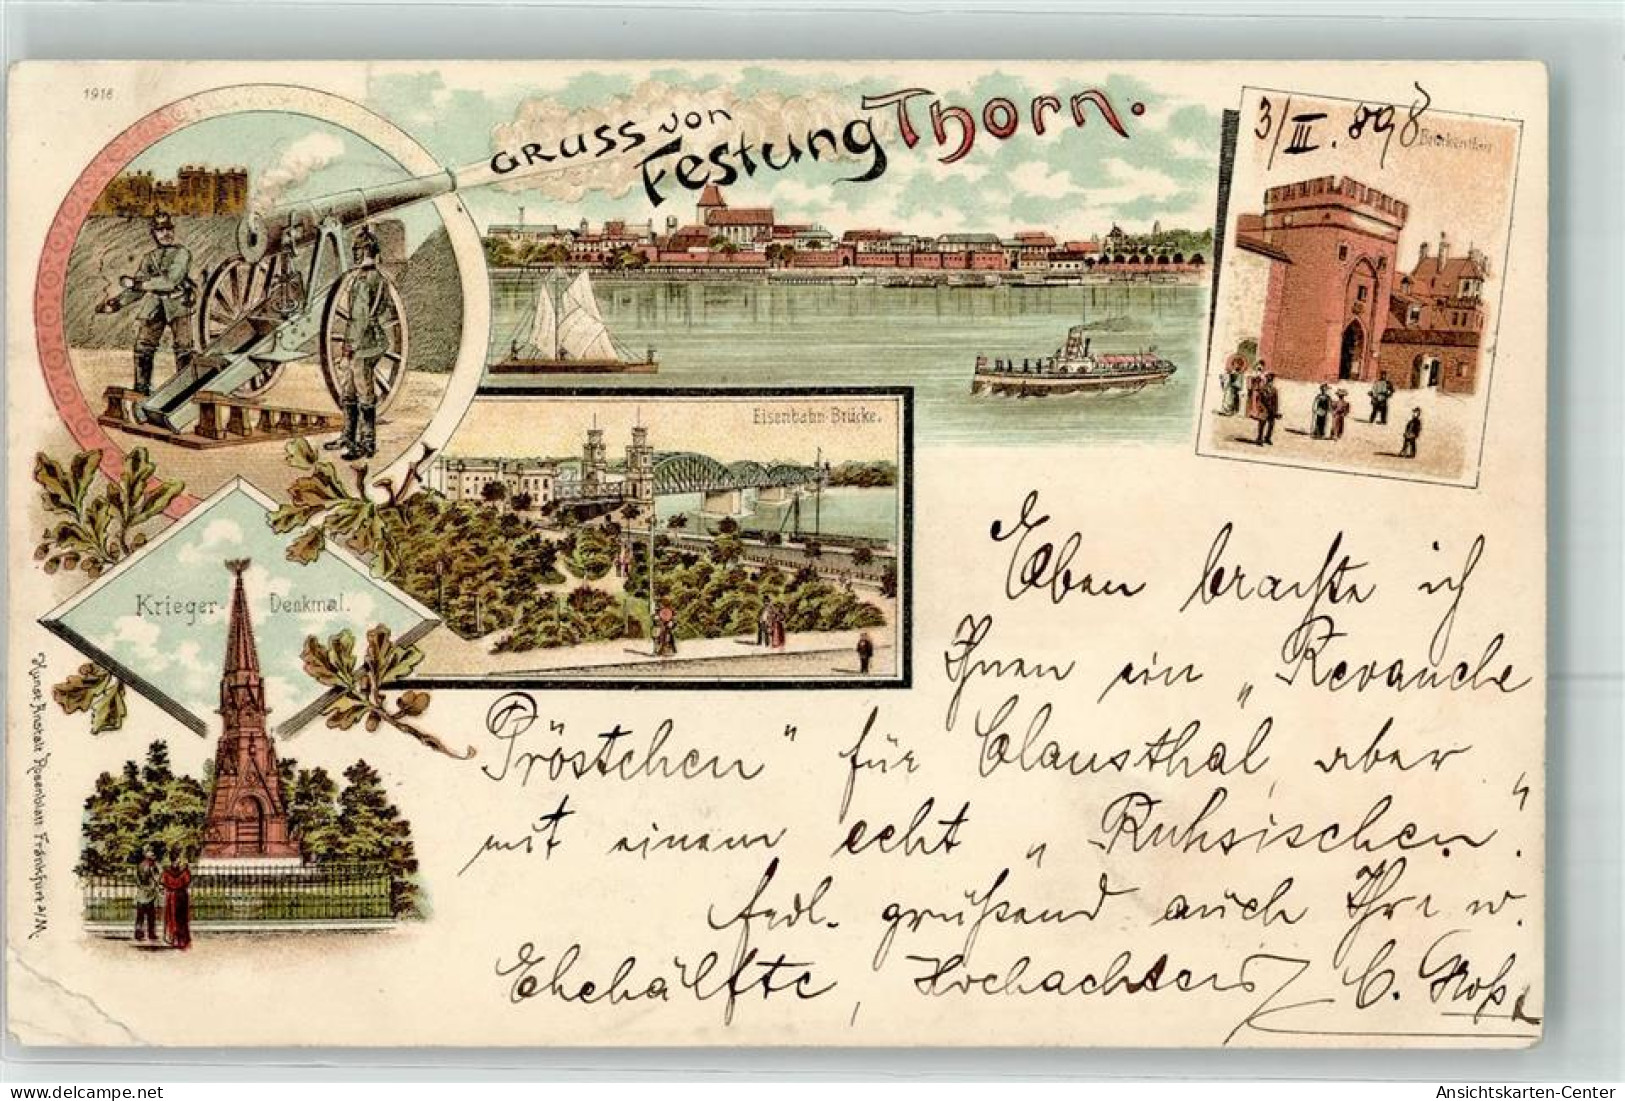 1916
GRUSS von
Festung Thorn.
3/III. 898
Brückenthor
Eisenbahn-Brücke.
Krieger- Denkmal.
Kunst-Anstalt Rosenblatt Frankfurt a/M.
Eben brachte ich
Ihnen ein „Revanche
Pröstchen" für Clausthal, aber
mit einem echt „Ruhsischen".
frdl. grüßend auch Ihre w.
Ehehälfte, Hochachtend
C.
Ansichtskarten-Center